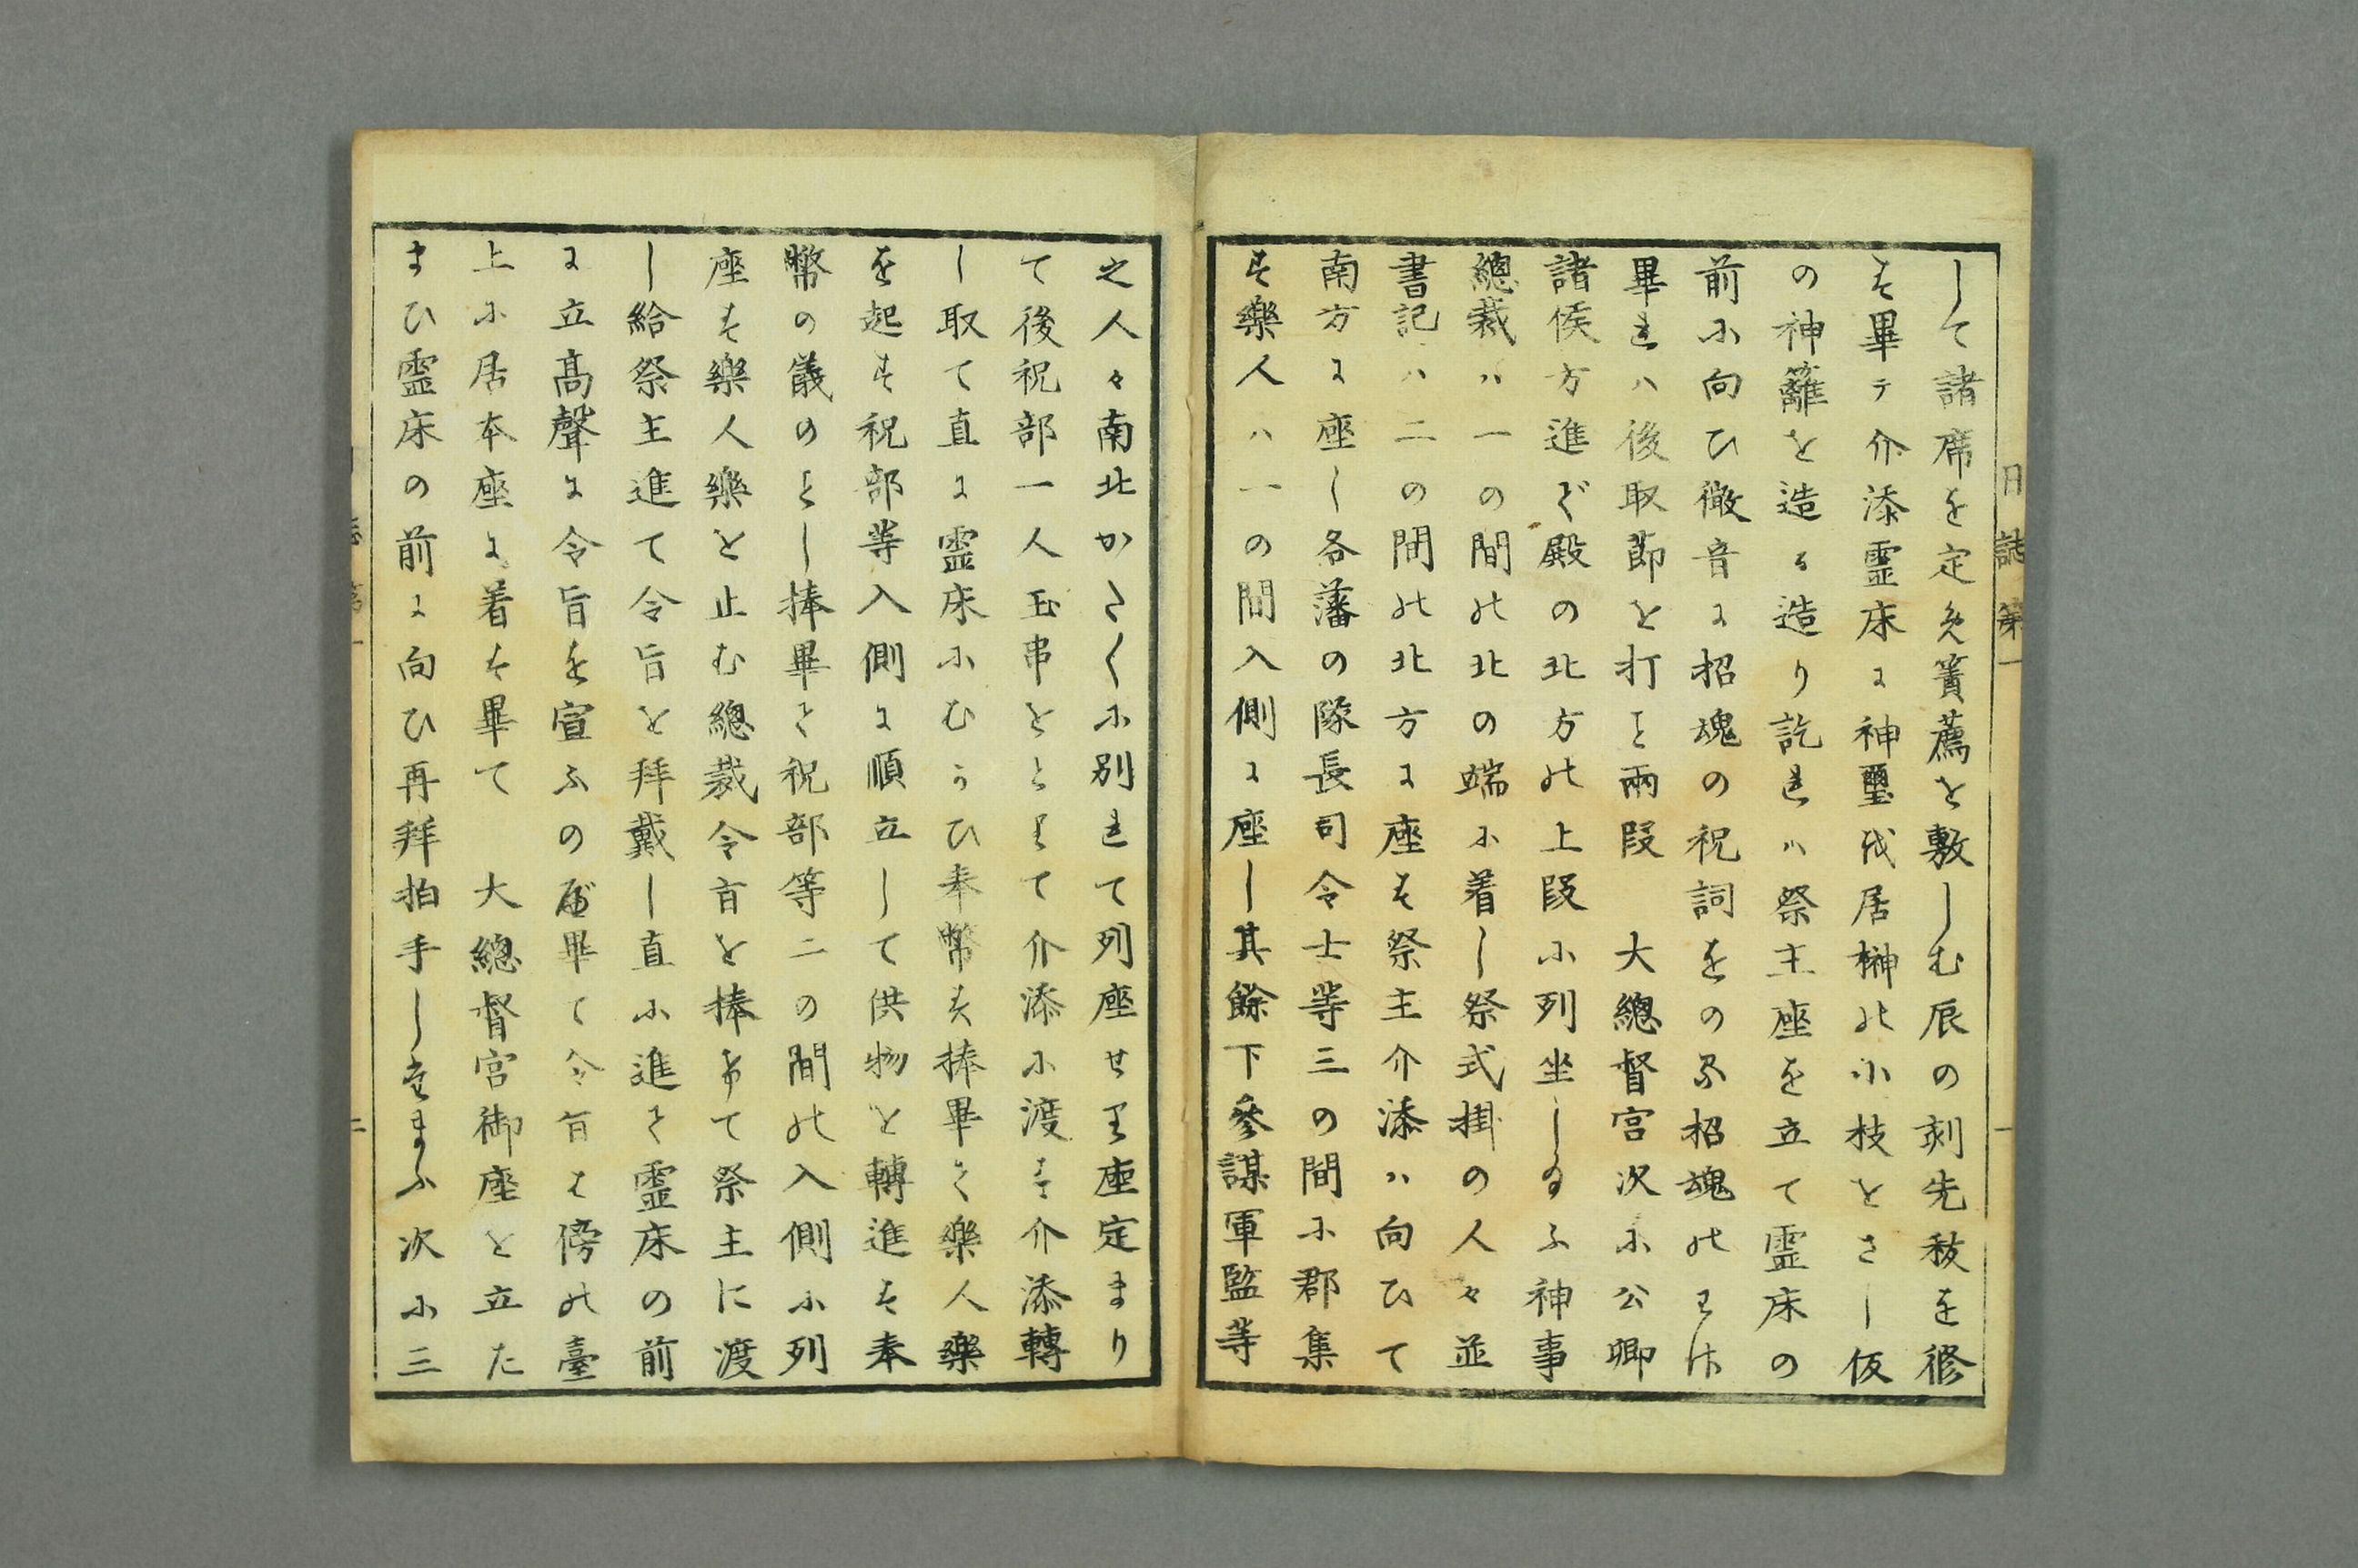 日誌第一
一
して諸席を定め簀薦を敷しむ辰の刻先祓を修
す畢テ介添霊床に神璽代居榊の小枝をさし仮
の神籬を造る造り訖れハ祭主座を立て霊床の
前に向ひ微音に招魂の祝詞をのる招魂の
畢れハ後取節を打と両段　大總督宮次に公卿
諸侯方進ぞ殿の北方の上段に列坐し給ふ神事
總裁ハ一の間の北の端に着し祭式掛の人々並
書記ハ二の間の北方に座す祭主介添ハ向ひて
南方に座し各藩の隊長司令士等三の間に郡集
す樂人ハ一の間入側に座し其餘下參謀軍監等
之人々南北かたくに別れて列座せり座定まり
て後祝部一人玉串をとりて介添に渡す介添轉
し取て直に霊床にむかひ奉幣す捧畢て樂人樂
を起す祝部等入側に順立して供物を轉進す奉
幣の儀のとし捧畢て祝部等二の間の入側に列
座す樂人樂を止む總裁令旨を捧来て祭主に渡
し給祭主進て令旨を拜戴し直に進て霊床の前
に立高聲に令旨を宣ふの畢て令旨は傍の臺
上に居本座に着す畢て　大總督宮御座を立た
まひ霊床の前に向ひ再拜拍手したまふ次に三
二